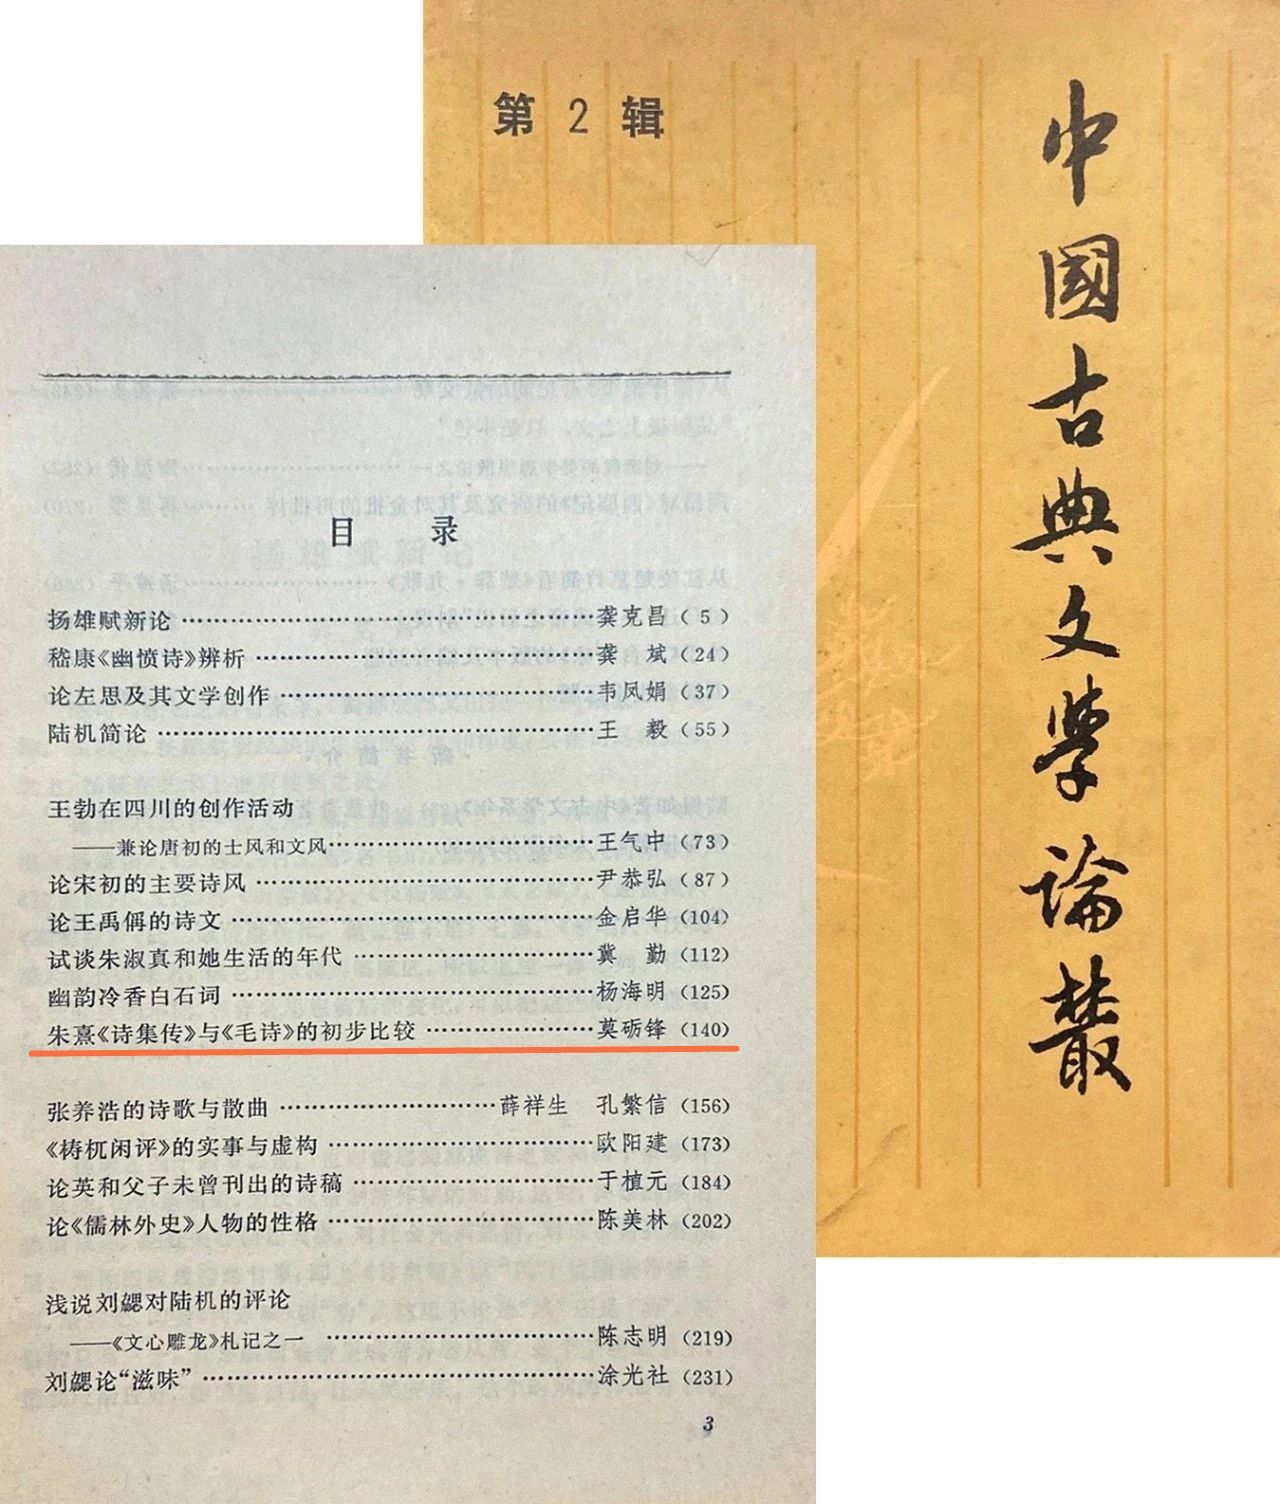 第2辑
中國古典文學論叢
目 录
扬雄赋新论……龚克昌(5)
嵇康《幽愤诗》辨析……龚 斌(24)
论左思及其文学创作……韦凤娟(37)
陆机简论……王 毅(55)
王勃在四川的创作活动
——兼论唐初的士风和文风……王气中(73)
论宋初的主要诗风……尹恭弘(87)
论王禹偁的诗文……金启华(104)
试谈朱淑真和她生活的年代……冀 勤(112)
幽韵冷香白石词……杨海明(125)
朱熹《诗集传》与《毛诗》的初步比较……莫砺锋(140)
张养浩的诗歌与散曲……薛祥生 孔繁信(156)
《梼杌闲评》的实事与虚构……欧阳建(173)
论英和父子未曾刊出的诗稿……于植元(184)
论《儒林外史》人物的性格……陈美林(202)
浅说刘勰对陆机的评论
——《文心雕龙》札记之一……陈志明(219)
刘勰论“滋味”……涂光社(231)
3